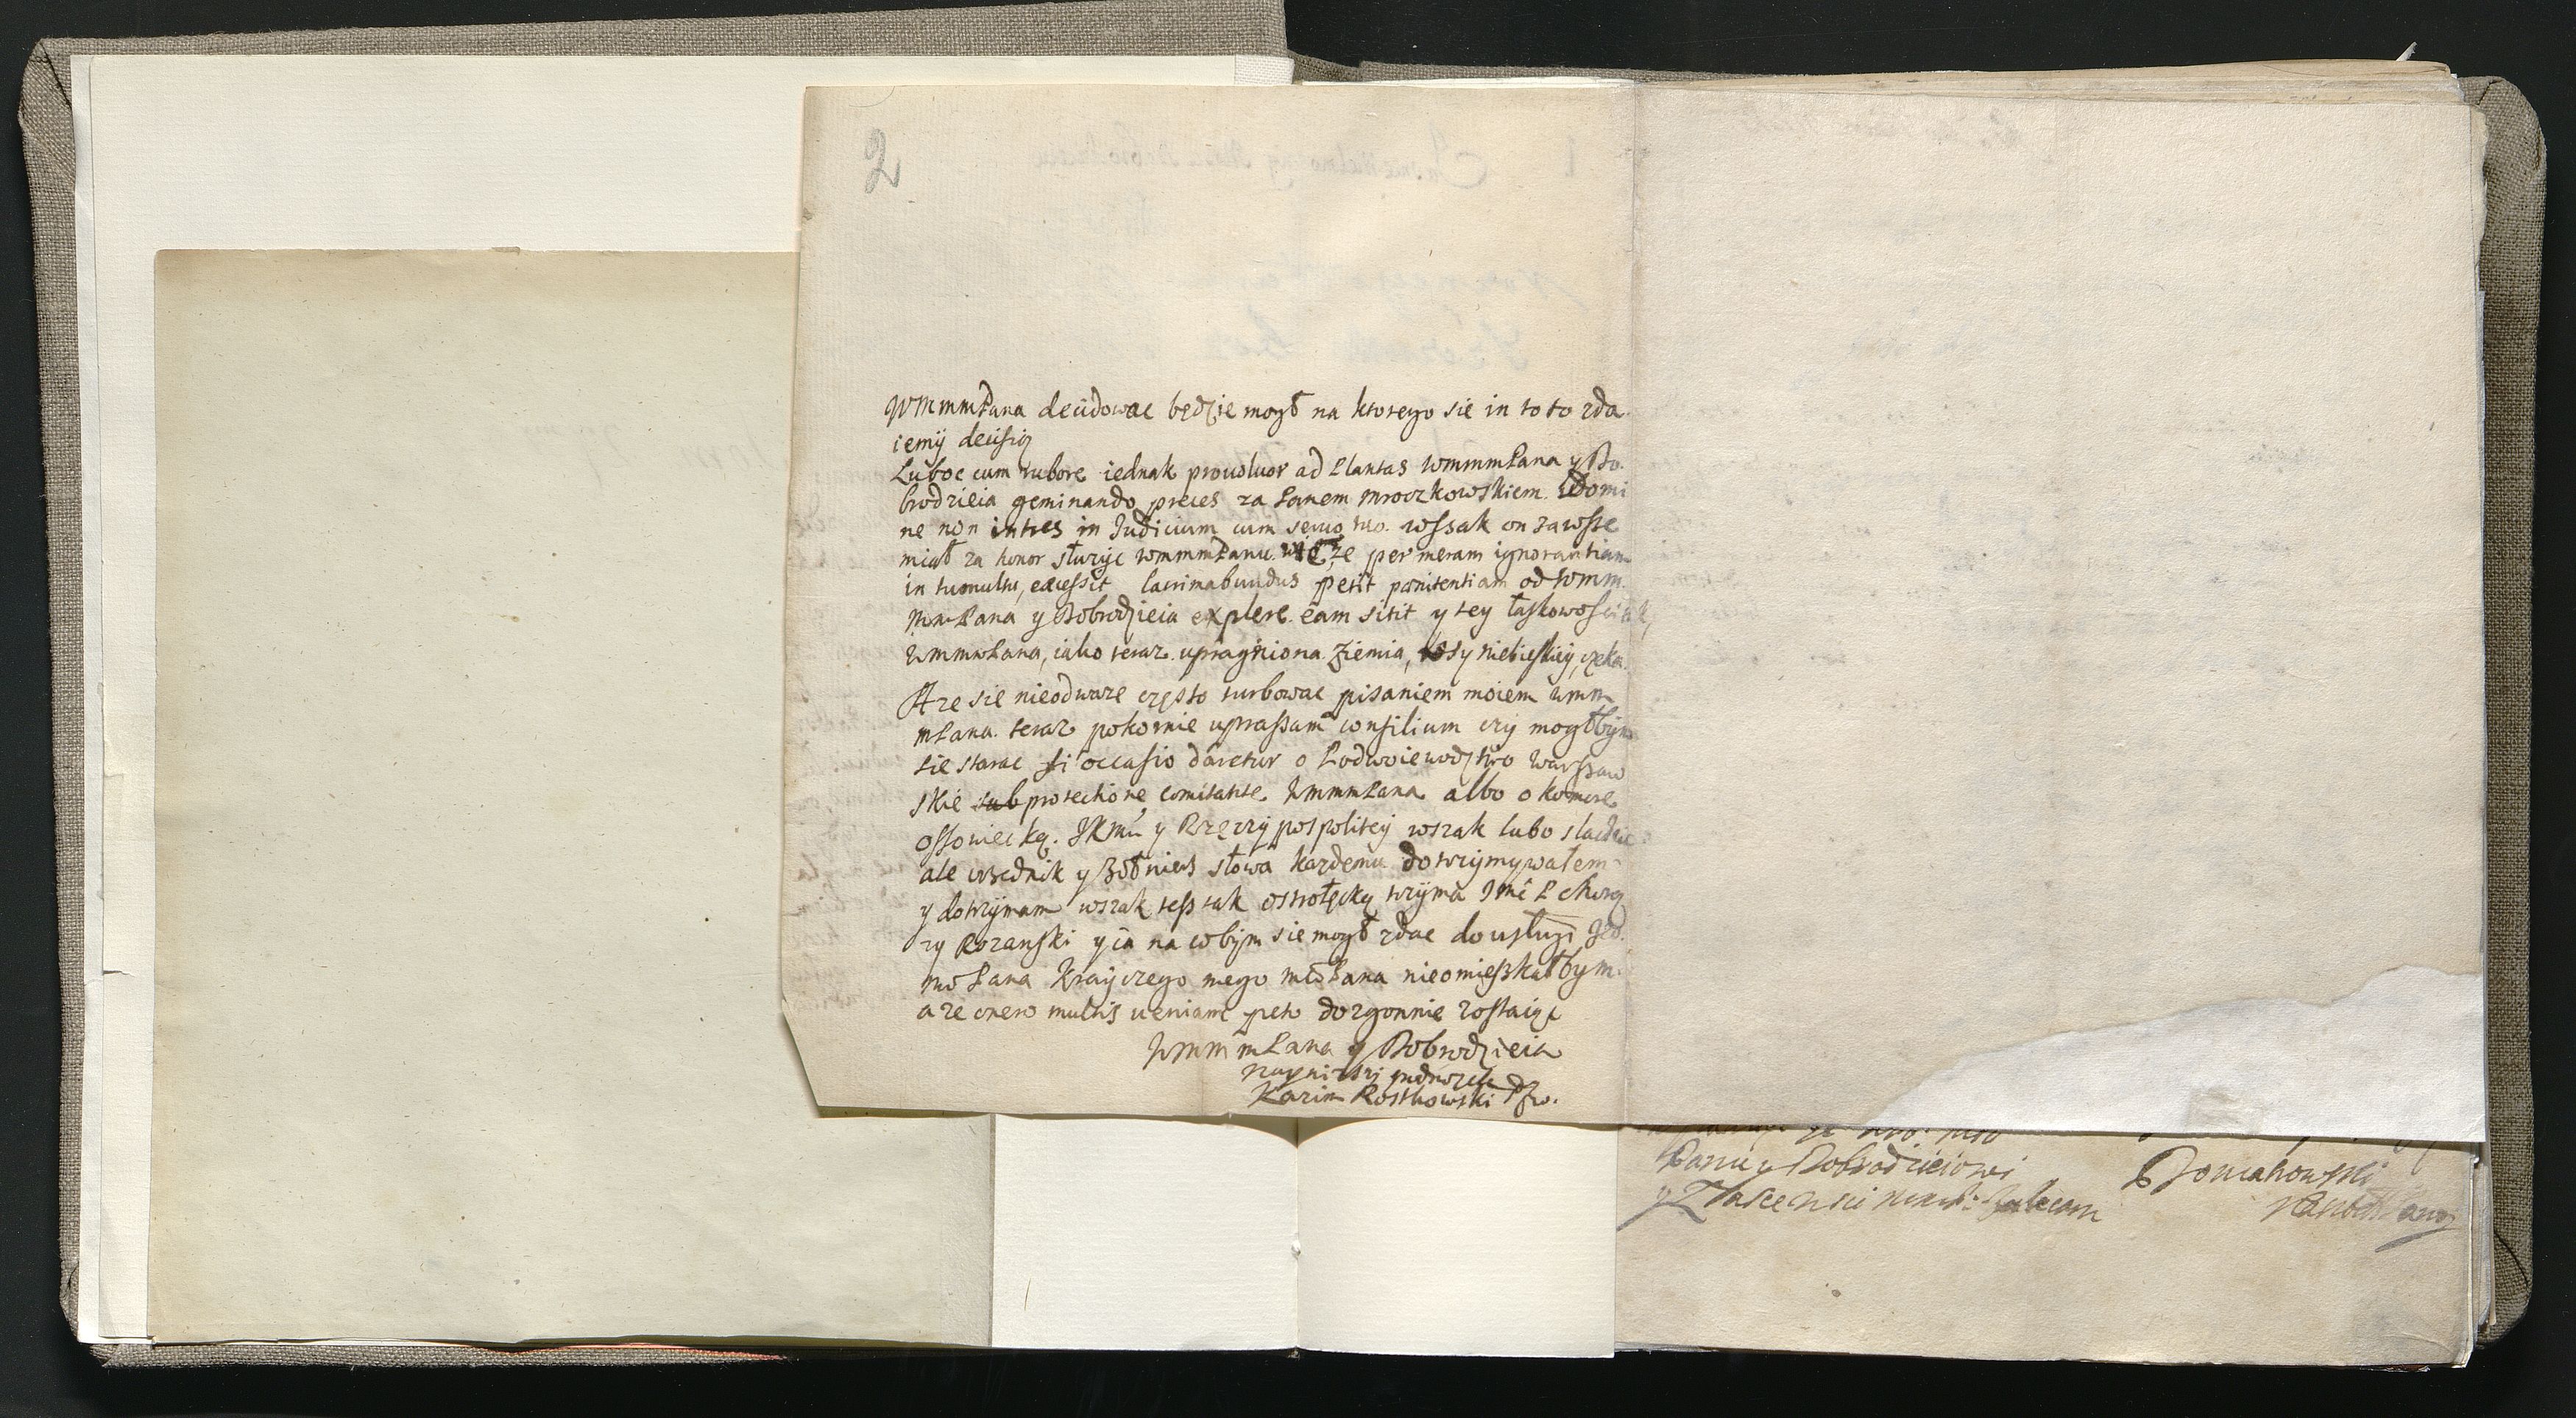 2
WMmmPana decidowac będzie mogł na ktorego się in toto zda
iemÿ decisią
Luboc cum rubore iednak prouoluor ad Plantas WmmmPana y Do.
brodzieia geminando preces za Panem Mroczkowskiem. Domi
ne non intres in Judicium cum seruo tuo. wssak on zawsse
miał za honor słuzÿc WmmmPanu. że per meram ignorantiam
in tumultu, excessit lacrimabundus petit pænitentiam od Wmm.
MmPana y Dobrodzieia explere. eam sitit y tey łaskowosci
WmmmPana, iako teraz upragniona Ziemia, rosy niebieskiey, czeka.
A ze sie nieodwaze często turbowac pisaniem moiem Wmm
mPana. teraz pokornie uprassam consilium czÿ mogłbÿm
sie starac si occasio daretur o Podwoiewodztwo Warssaw
skie sub protectione comitante WmmmPana albo o komore
ossowiecką. JKMci y Rzeczÿpospolitey wszak lubo slachcic
ale urzednik y Zołniers słowa kazdemu dotrzÿmywałem
y dotrzÿmam wszak tess tak ostrołęcką trzÿma Jmć P Chorą
zy Rozanski y ia na co bÿm sie mogł zdac do usługi
Pana Kraÿczego mego Pana nieomieszkałbym
a ze onero multis ueniam peto dozgonnie zostaiąc
WmmmPana y Dobrodzieia
nayniszÿ podnozek
Kazim Rostkowski
Panu y Dobrodzieiowi